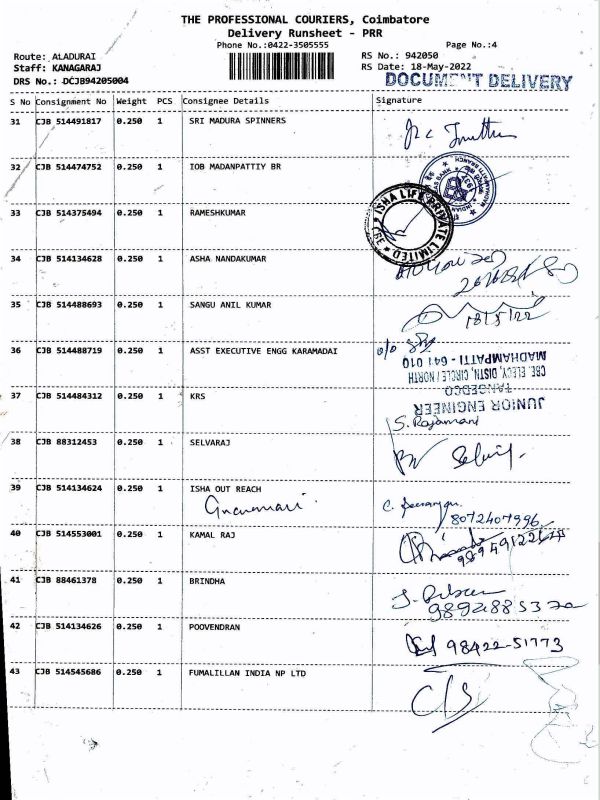 THE PROFESSIONAL COURIERS, Coimbatore
Delivery Runsheet - PRR
Phone No.:0422-3505555
Page No.:4
Route: ALADURAI
RS No.: 942050
Staff: KANAGARAJ
RS Date: 18-May-2022
DRS No.: DCJB94205004
DOCUMENT DELIVERY
S No Consignment No Weight PCS Consignee Details Signature
31 CJB 514491817 0.250 1 SRI MADURA SPINNERS
32 CJB 514474752 0.250 1 IOB MADANPATTIY BR
33 CJB 514375494 0.250 1 RAMESHKUMAR
ISHA LIFE PRIVATE LIMITED
CBE
34 CJB 514134628 0.250 1 ASHA NANDAKUMAR
35 CJB 514488693 0.250 1 SANGU ANIL KUMAR
18/5/22
36 CJB 514488719 0.250 1 ASST EXECUTIVE ENGG KARAMADAI
JUNIOR ENGINEER
TANGEDCO
CBE. ELECY, DISTN, CIRCLE / NORTH
MADHAMPATTI - 641 010
37 CJB 514484312 0.250 1 KRS
S. Rajamani
38 CJB 88312453 0.250 1 SELVARAJ
39 CJB 514134624 0.250 1 ISHA OUT REACH
8072407996
40 CJB 514553001 0.250 1 KAMAL RAJ
41 CJB 88461378 0.250 1 BRINDHA
42 CJB 514134626 0.250 1 POOVENDRAN
98422-51773
43 CJB 514545686 0.250 1 FUMALILLAN INDIA NP LTD